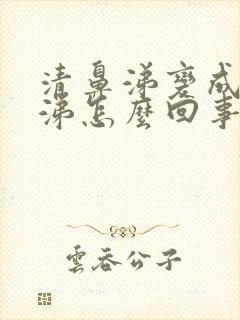 清鼻涕變成
涕怎麼回事
雲吞公子